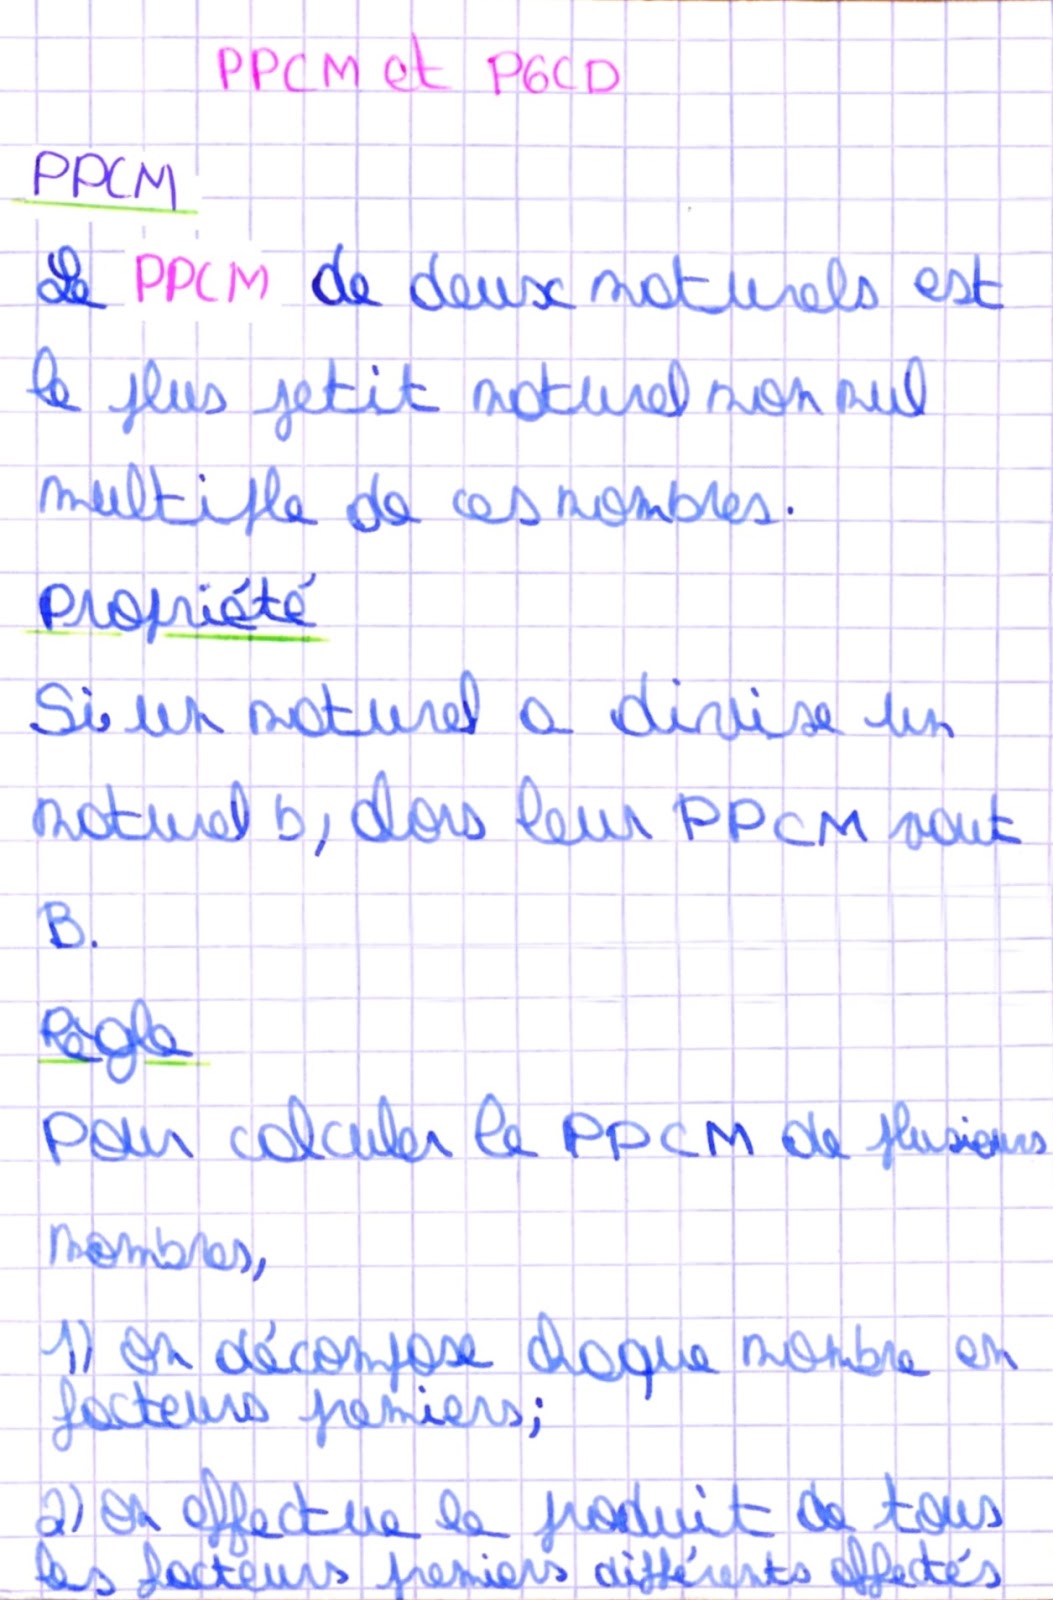 PPCM et PGCD
PPCM
Le PPCM de deux naturels est
le plus petit naturel non nul
multiple de ces nombres.
Propriété
Si un naturel a divise un
naturel b, alors leur PPCM vaut
B.
Règle
Pour calculer le PPCM de plusieurs
nombres,
1) on décompose chaque nombre en
facteurs premiers;
2) on effectue le produit de tous
les facteurs premiers différents affectés